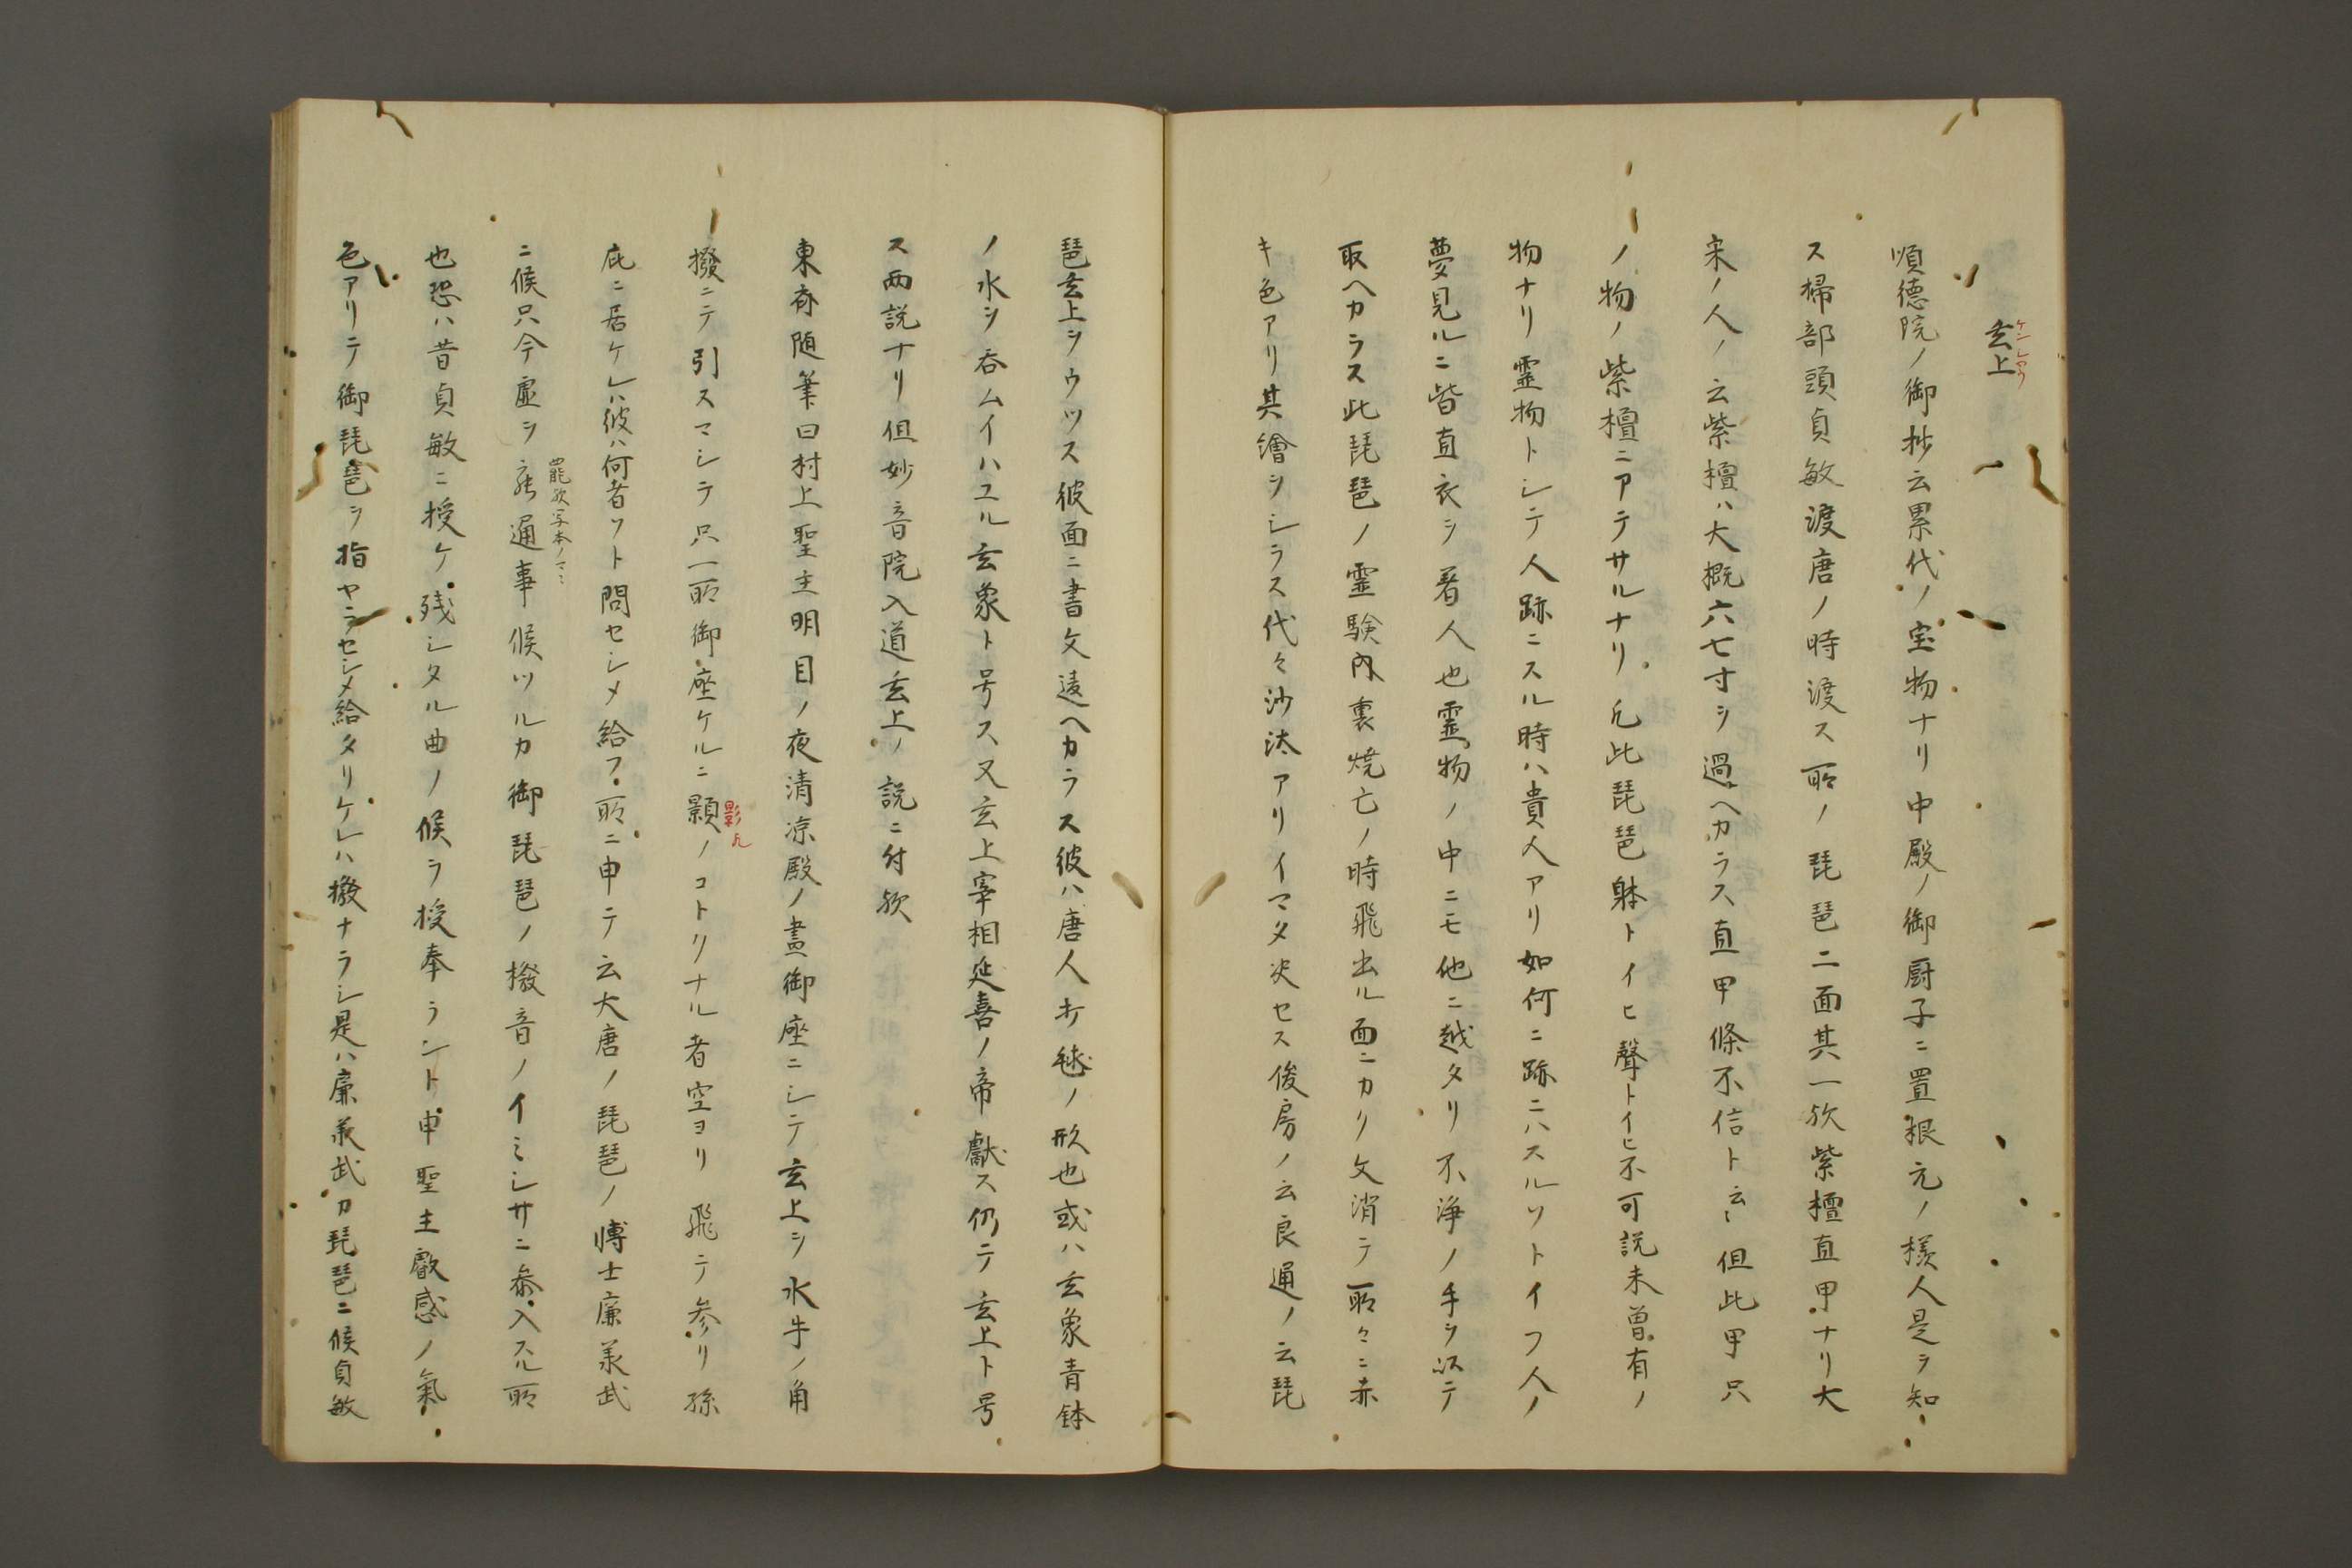 玄上
ケンシヤウ
順徳院ノ御抄云累代ノ宝物ナリ中殿ノ御厨子ニ置根元ノ様人是ヲ知
ス掃部頭貞敏渡唐ノ時渡ス所ノ琵琶二面其一欤紫檀直甲ナリ大
宋ノ人ノ云紫檀ハ大概六七寸ヲ過ヘカラス直甲條不信ト云〻但此甲只
ノ物ノ紫檀ニアテサルナリ凡此琵琶躰トイヒ聲トイヒ不可説未曽有ノ
物ナリ霊物トシテ人跡ニスル時ハ貴人アリ如何ニ跡ニハスルソトイフ人ノ
夢見ルニ皆直衣ヲ着人也霊物ノ中ニモ他ニ越タリ不浄ノ手ヲ以テ
取ヘカラス此琵琶ノ霊験内裏焼亡ノ時飛出ル面ニカリ文消テ所々ニ赤
キ色アリ其繪ヲシラス代々沙汰アリイマタ决セス俊房ノ云良通ノ云琵
琶玄上ヲウツス彼面ニ書文違ヘカラス彼ハ唐人打毬ノ形也或ハ玄象青鉢
ノ水ヲ呑ムイハユル玄象ト号ス又玄上宰相延喜ノ帝獻ス仍テ玄上ト号
ス両説ナリ但妙音院入道玄上ノ説ニ付欤
東斎随筆曰村上聖主明月ノ夜清凉殿ノ晝御座ニシテ玄上ヲ水牛ノ角
撥ニテ引スマシテ只一所御座ケルニ顥ノコトクナル者空ヨリ飛テ参リ孫
影
庇ニ居ケレハ彼ハ何者ソト問セシメ給フ所ニ申テ云大唐ノ琵琶ノ博士廉義武
ニ候只今虚ヲ能通事候ツルカ御琵琶ノ撥音ノイミシサニ参入スル所
罷欤写本ノマヽ
也恐ハ昔貞敏ニ授ケ残シタル曲ノ候ヲ授奉ラント申聖主叡感ノ氣
色アリテ御琵琶ヲ指ヤラセシメ給タリケレハ撥ナラシ是ハ廉義武カ琵琶ニ候貞敏